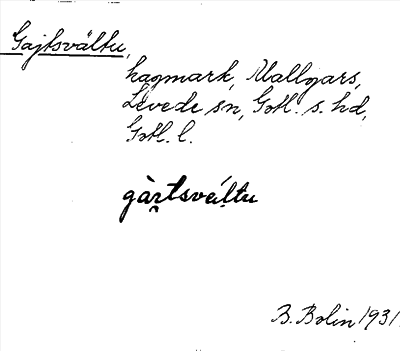 Gajtsvältu,
hagmark, Mallgars,
Levede sn, Gotl. s. hd,
Gotl. l.
gàr̥tsvéḷtu
B. Bolin 1931.